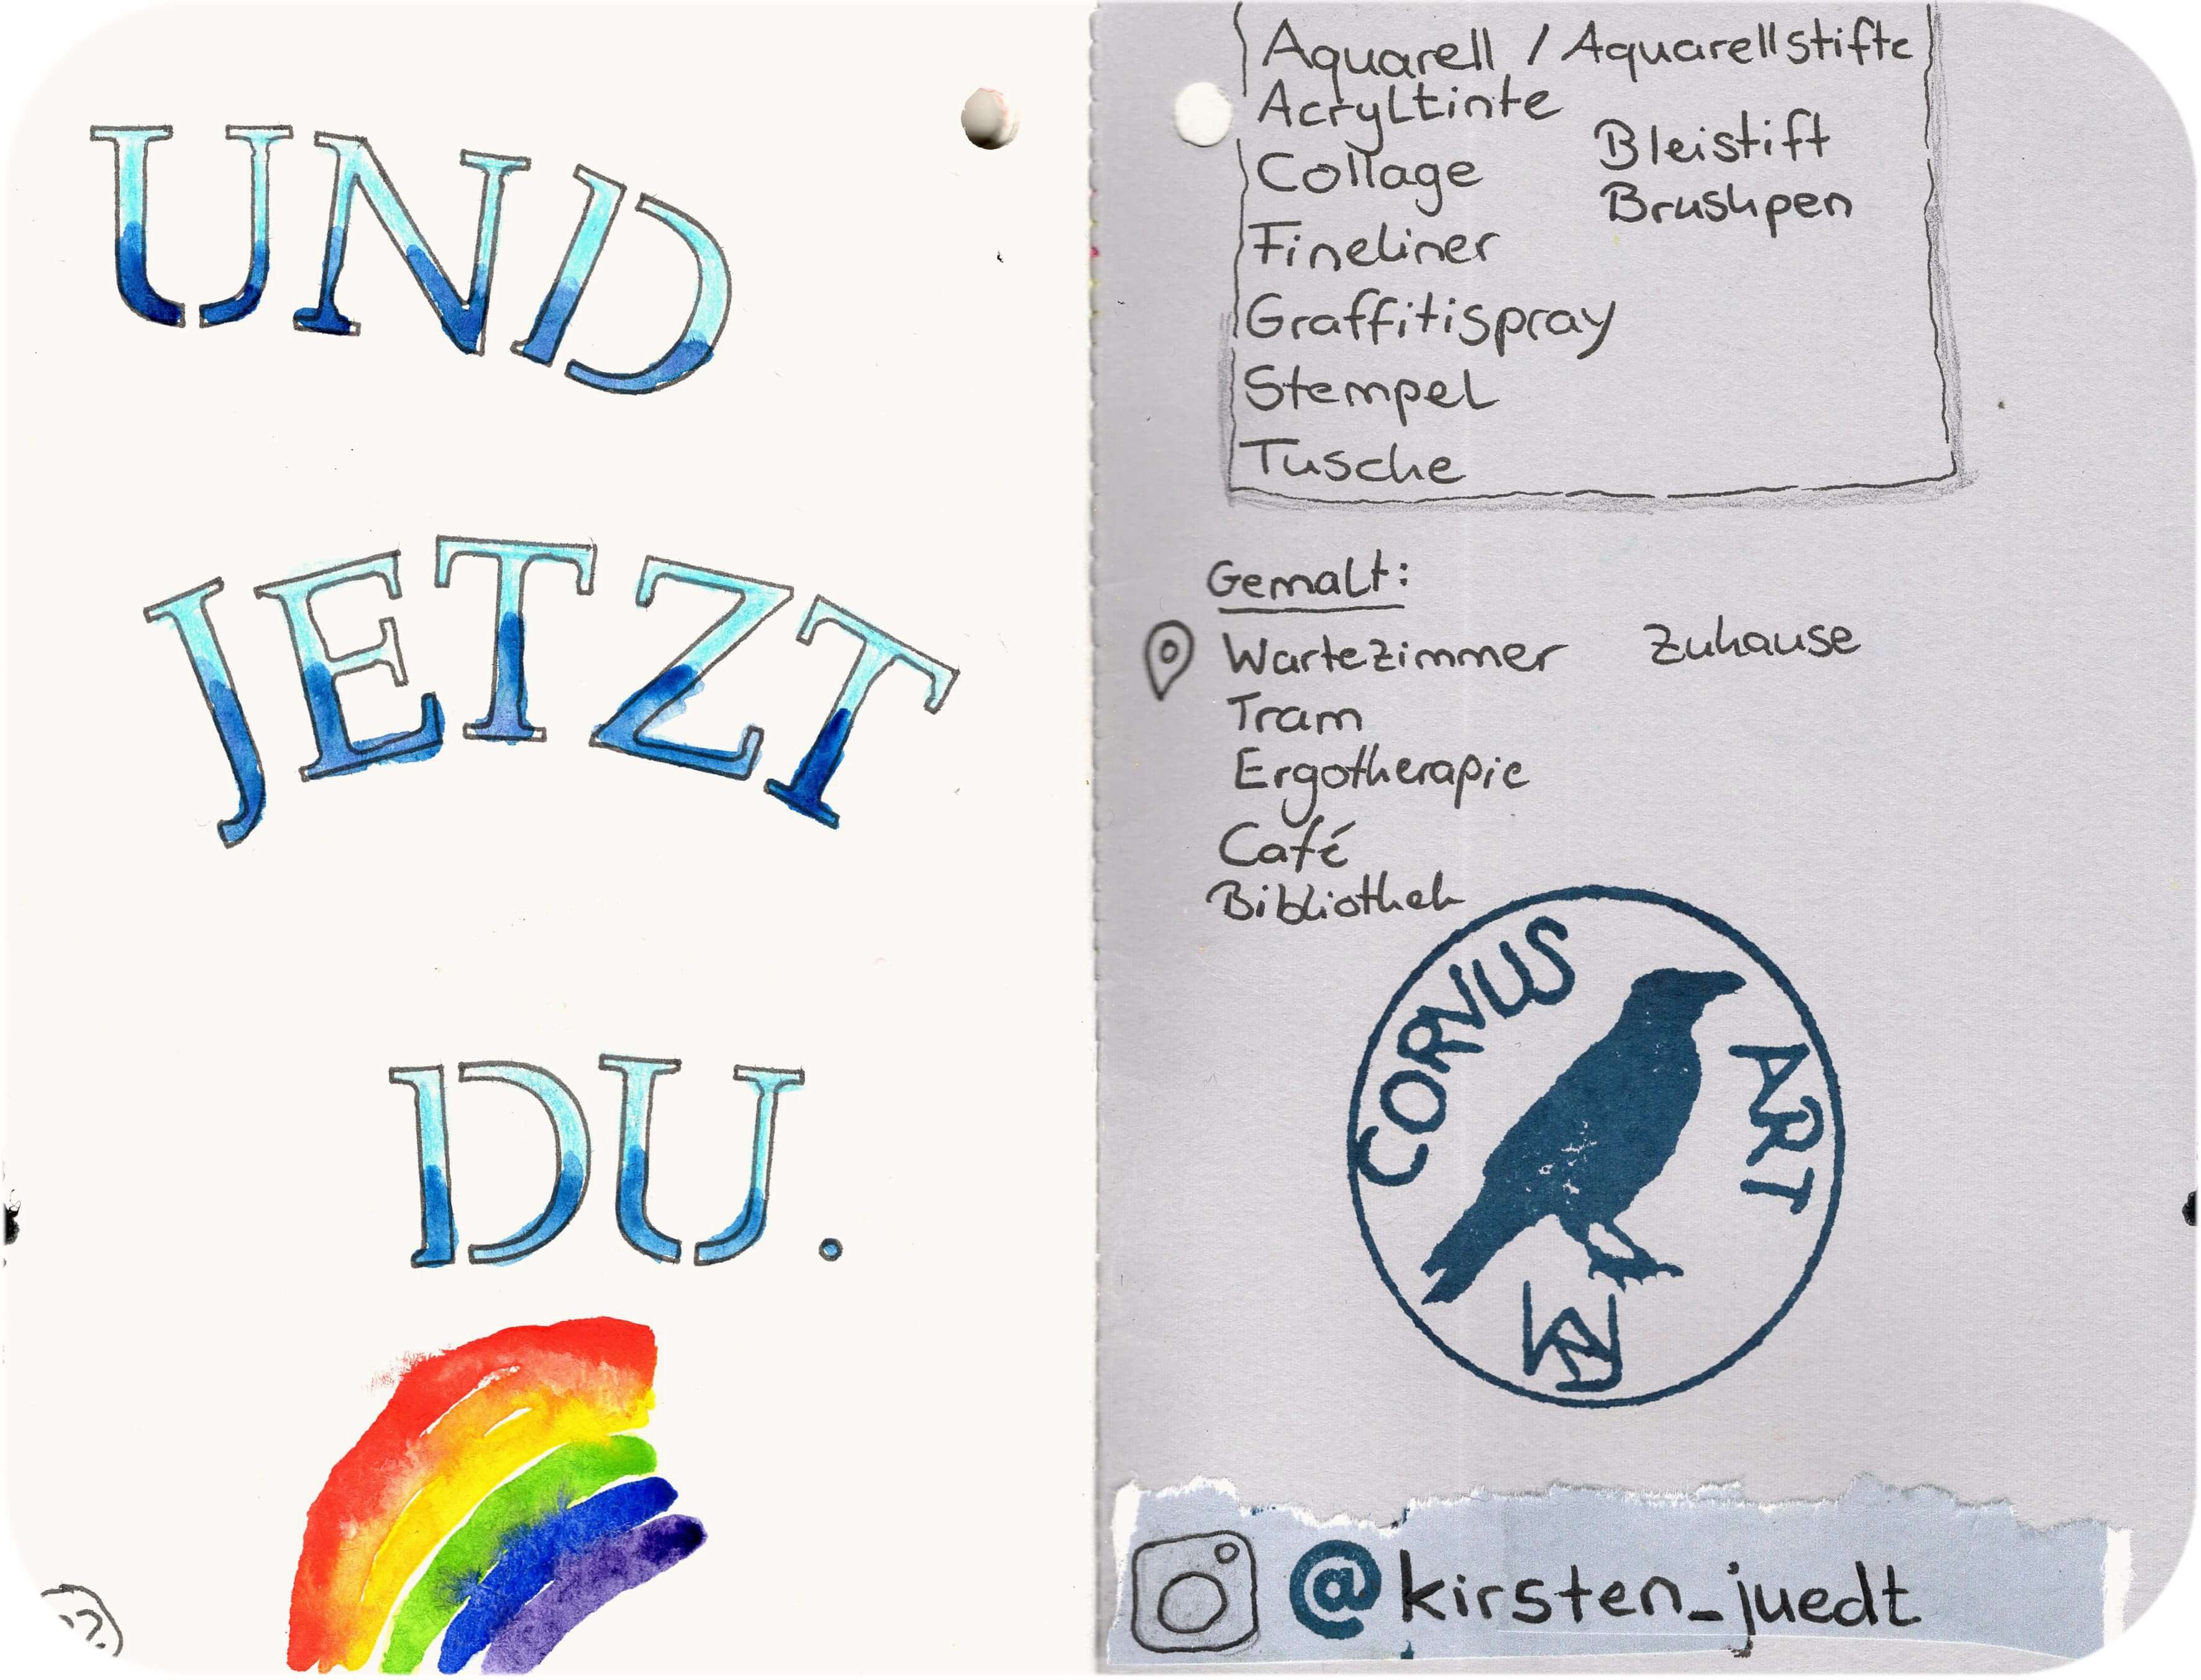 UND
JETZT
DU.
Aquarell / Aquarellstifte
Acryltinte
Bleistift
Collage
Brushpen
Fineliner
Graffitispray
Stempel
Tusche
Gemalt:
Wartezimmer Zuhause
Tram
Ergotherapie
Café
Bibliothek
CORVUS ART
@kirsten_juedt